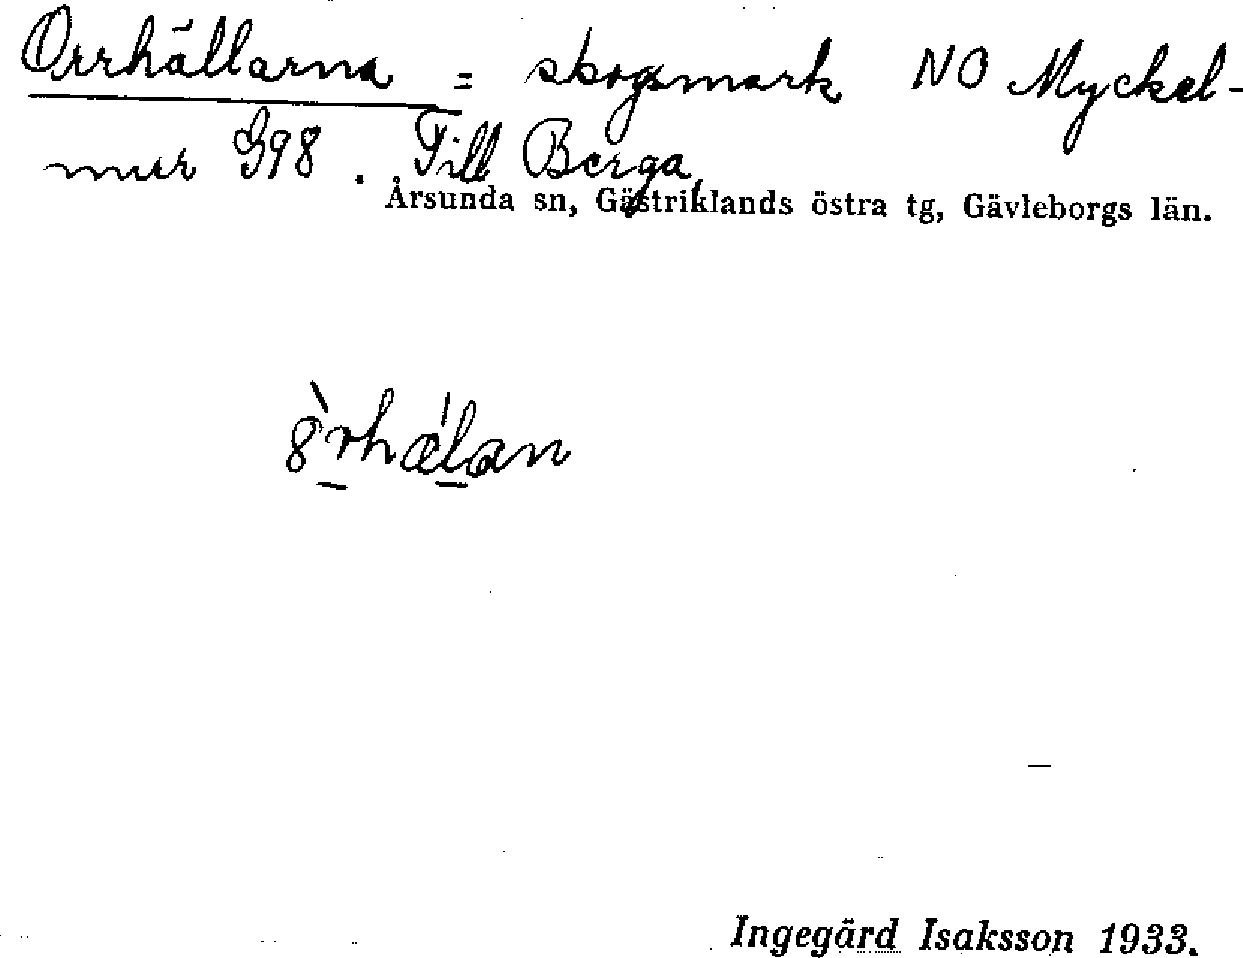 Orrhällarna = skogsmark NO Myckel-
mur G98. Till Berga
Årsunda sn, Gästriklands östra tg, Gävleborgs län.
8̀rhǽlan
Ingegärd Isaksson 1933.